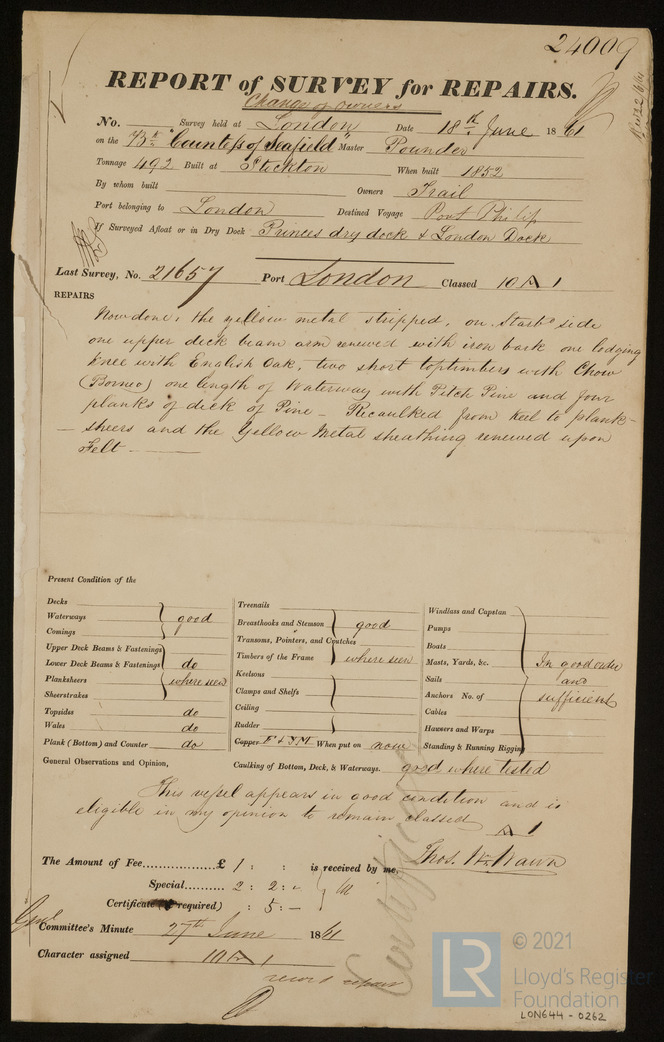 24009
REPORT of SURVEY for REPAIRS.
Change of owners
No. Survey held at London Date 18th June 1861
on the Bk "Countess of Seafield" Master Pounder
Tonnage 492 Built at Stockton When built 1852
By whom built Owners Trail
Port belonging to London Destined Voyage Port Philip
If Surveyed Afloat or in Dry Dock Princes dry dock & London Dock
Last Survey, No. 21657 Port London Classed 10 A 1
REPAIRS
Now done, the yellow metal stripped, on Starbd side
one upper deck beam arm renewed with iron bark one lodging
knee with English Oak, two short toptimbers with Chow
(Borneo) one length of Waterway with Pitch Pine and four
planks of deck of Pine - Recaulked from keel to plank-
-sheers and the Yellow Metal sheathing renewed upon
Felt
Present Condition of the
Decks
Waterways good
Comings
Upper Deck Beams & Fastenings
Lower Deck Beams & Fastenings do
Planksheers where seen
Sheerstrakes
Topsides do
Wales do
Plank (Bottom) and Counter do
Treenails
Breasthooks and Stemson good
Transoms, Pointers, and Crutches
Timbers of the Frame where seen
Keelsons
Clamps and Shelfs
Ceiling
Rudder
Copper F & YM When put on now
Windlass and Capstan
Pumps
Boats
Masts, Yards, &c. In good order
Sails and
Anchors No. of sufficient
Cables
Hawsers and Warps
Standing & Running Rigging
General Observations and Opinion, Caulking of Bottom, Deck, & Waterways. good where tested
This vessel appears in good condition and is
eligible in my opinion to remain classed A 1
The Amount of Fee £ 1 : : is received by me, Thos. Wm Wawn
Special 2 : 2 : -
Certificate (if required) : 5 : -
Certificate
Committee's Minute 27th June 1861
Character assigned 10 A 1
record repairs
© 2021
LR
Lloyd's Register
Foundation
LON644-0262